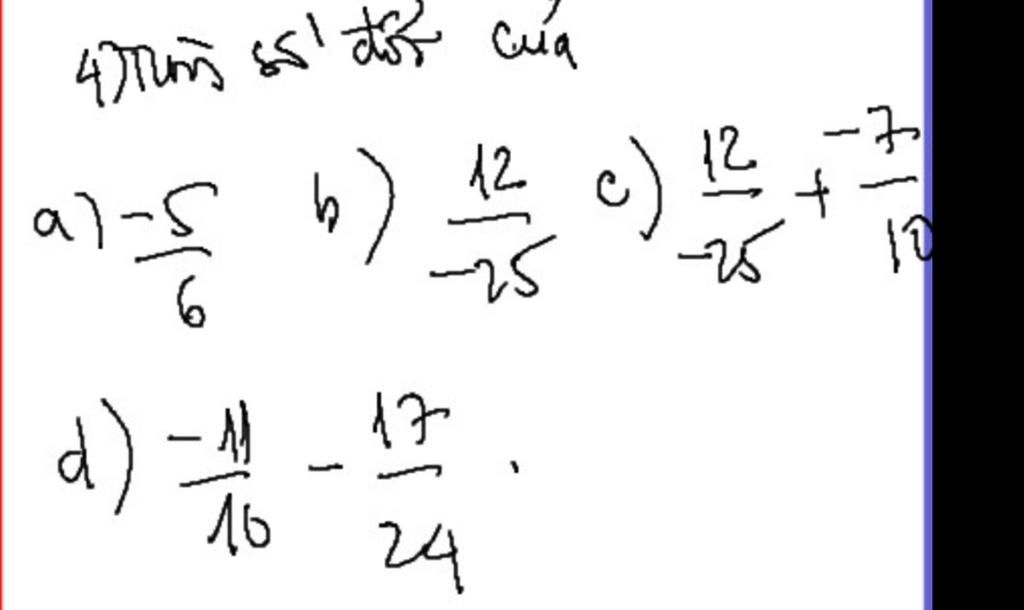 4) Tìm số đối của
a) \frac{-5}{6} b) \frac{12}{-25} c) \frac{12}{-25} + \frac{-7}{10}
d) \frac{-11}{16} - \frac{17}{24} .